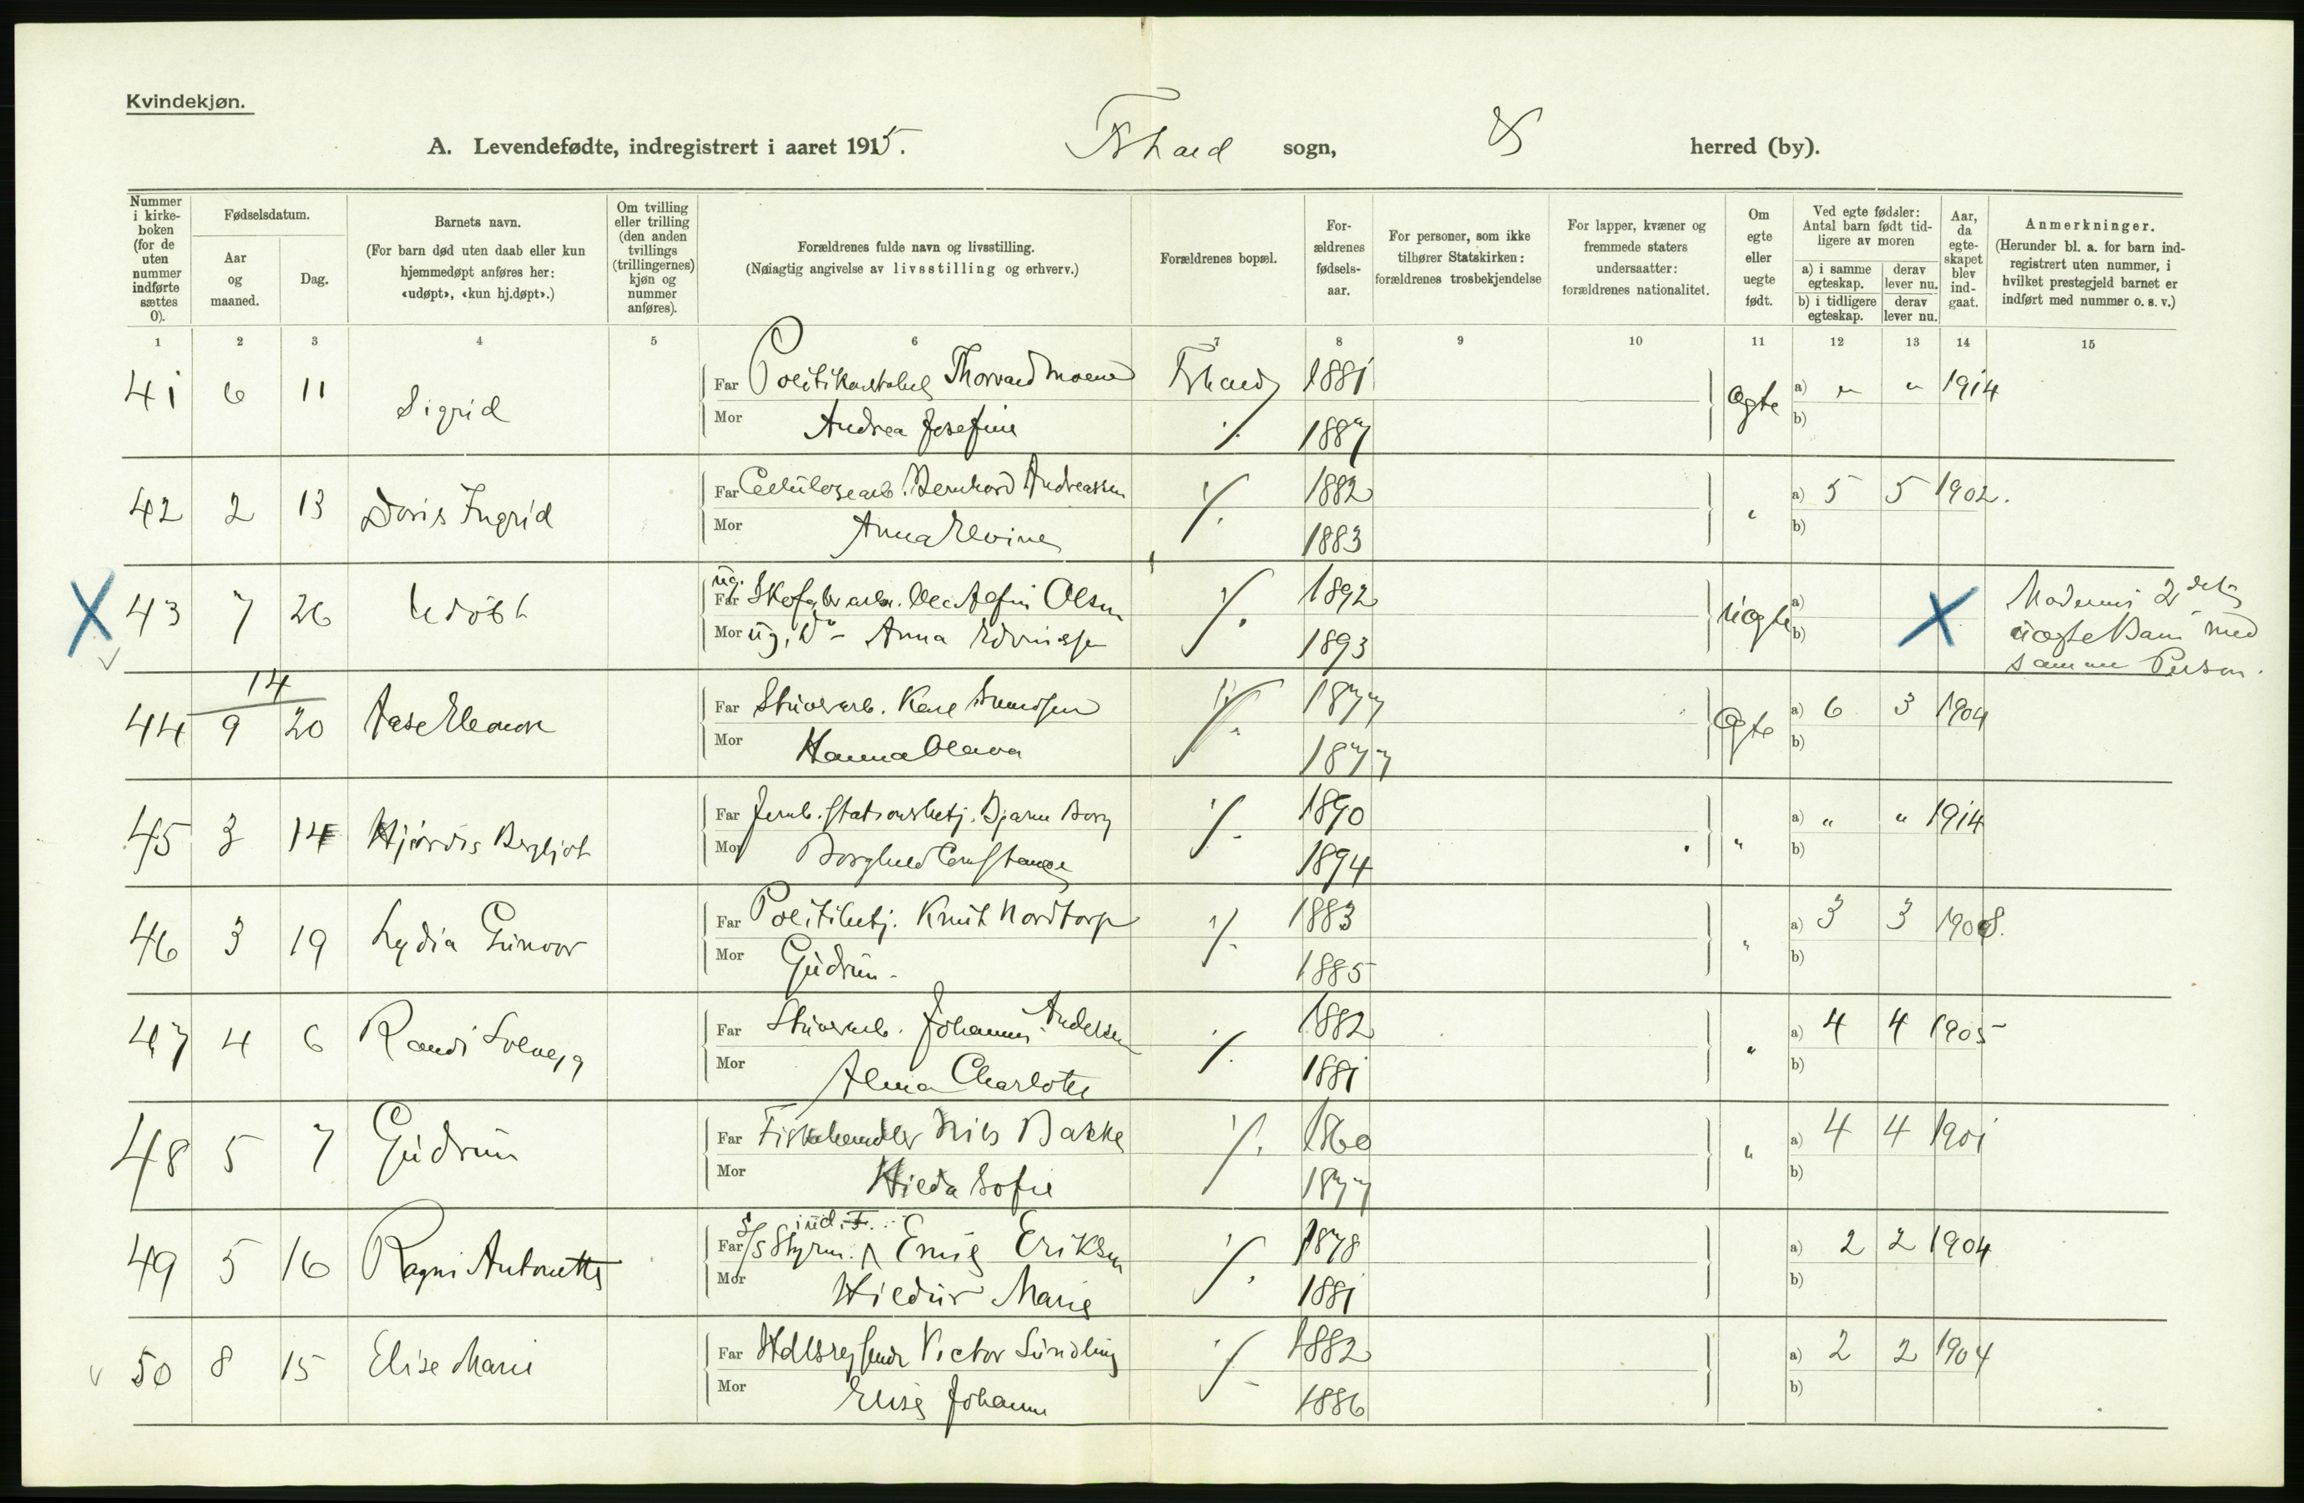 Kvindekjøn.
A. Levendefødte, indregistrert i aaret 1915. Fshald sogn, herred (by).
Nummer i kirkeboken (for de uten nummer indførte sættes 0).
Fødselsdatum.
Aar og maaned.
Dag.
Barnets navn.
(For barn død uten daab eller kun hjemmedøpt anføres her: «udøpt», «kun hj.døpt».)
Om tvilling eller trilling (den anden tvillings (trillingernes) kjøn og nummer anføres).
Forældrenes fulde navn og livsstilling.
(Nøiagtig angivelse av livsstilling og erhverv.)
Forældrenes bopæl.
Forældrenes fødselsaar.
For personer, som ikke tilhører Statskirken: forældrenes trosbekjendelse
For lapper, kvæner og fremmede staters undersaatter: forældrenes nationalitet.
Om egte eller uegte født.
Ved egte fødsler: Antal barn født tidligere av moren
a) i samme egteskap. derav lever nu.
b) i tidligere egteskap. derav lever nu.
Aar, da egteskapet blev indgaat.
Anmerkninger.
(Herunder bl. a. for barn indregistrert uten nummer, i hvilket prestegjeld barnet er indført med nummer o. s. v.)
1 2 3 4 5 6 7 8 9 10 11 12 13 14 15
41 6 11 Sigrid Far Politikonstabel Thorvald Moene Fshald 1881 Ægte a) " " 1914
Mor Andrea Josefine ./. 1887 b)
42 2 13 Doris Ingrid Far Celulosearb. Bernhard Andreassen ./. 1882 " a) 5 5 1902.
Mor Anna Elvine 1883 b)
43 7 26 Udøbt Far ug. Skofabr.arb. Ole Alfin Olsen ./. 1892 Uægte a) X Moderens 2det
Mor ug. Do - Anna 1893 b) uægte Barn med
samme Person.
14
44 9 20 Aase Eleonore Far Stuverarb. Karl ./. 1877 Ægte a) 6 3 1904
Mor Hanna Olava 1877 b)
45 3 14 Hjørdis Bergljot Far Jernb. Stationsbetj. Bjarne Borg ./. 1890 " a) " " 1914
Mor Borghild Constance 1894 b)
46 3 19 Lydia Gunvor Far Politibetj. Knut Nordtorp ./. 1883 " a) 3 3 1908.
Mor Gudrun - 1885 b)
47 4 6 Randi Solveig Far Stuverarb. Johannes Andersen ./. 1882 " a) 4 4 1905
Mor Alma Charlotte 1881 b)
48 5 7 Gudrun Far Fiskehandler Nils Bakke ./. 1860 " a) 4 4 1901
Mor Hilda Sofie 1877 b)
49 5 16 Ragni Antonette Far S/S Styrm. ind. F. Emil Eriksen ./. 1878 a) 2 2 1904
Mor Hildur Marie 1881 b)
50 8 15 Elise Marie Far Hdlsreisende Victor Sundling ./. 1882 a) 2 2 1904
Mor Elise Johanne 1886 b)